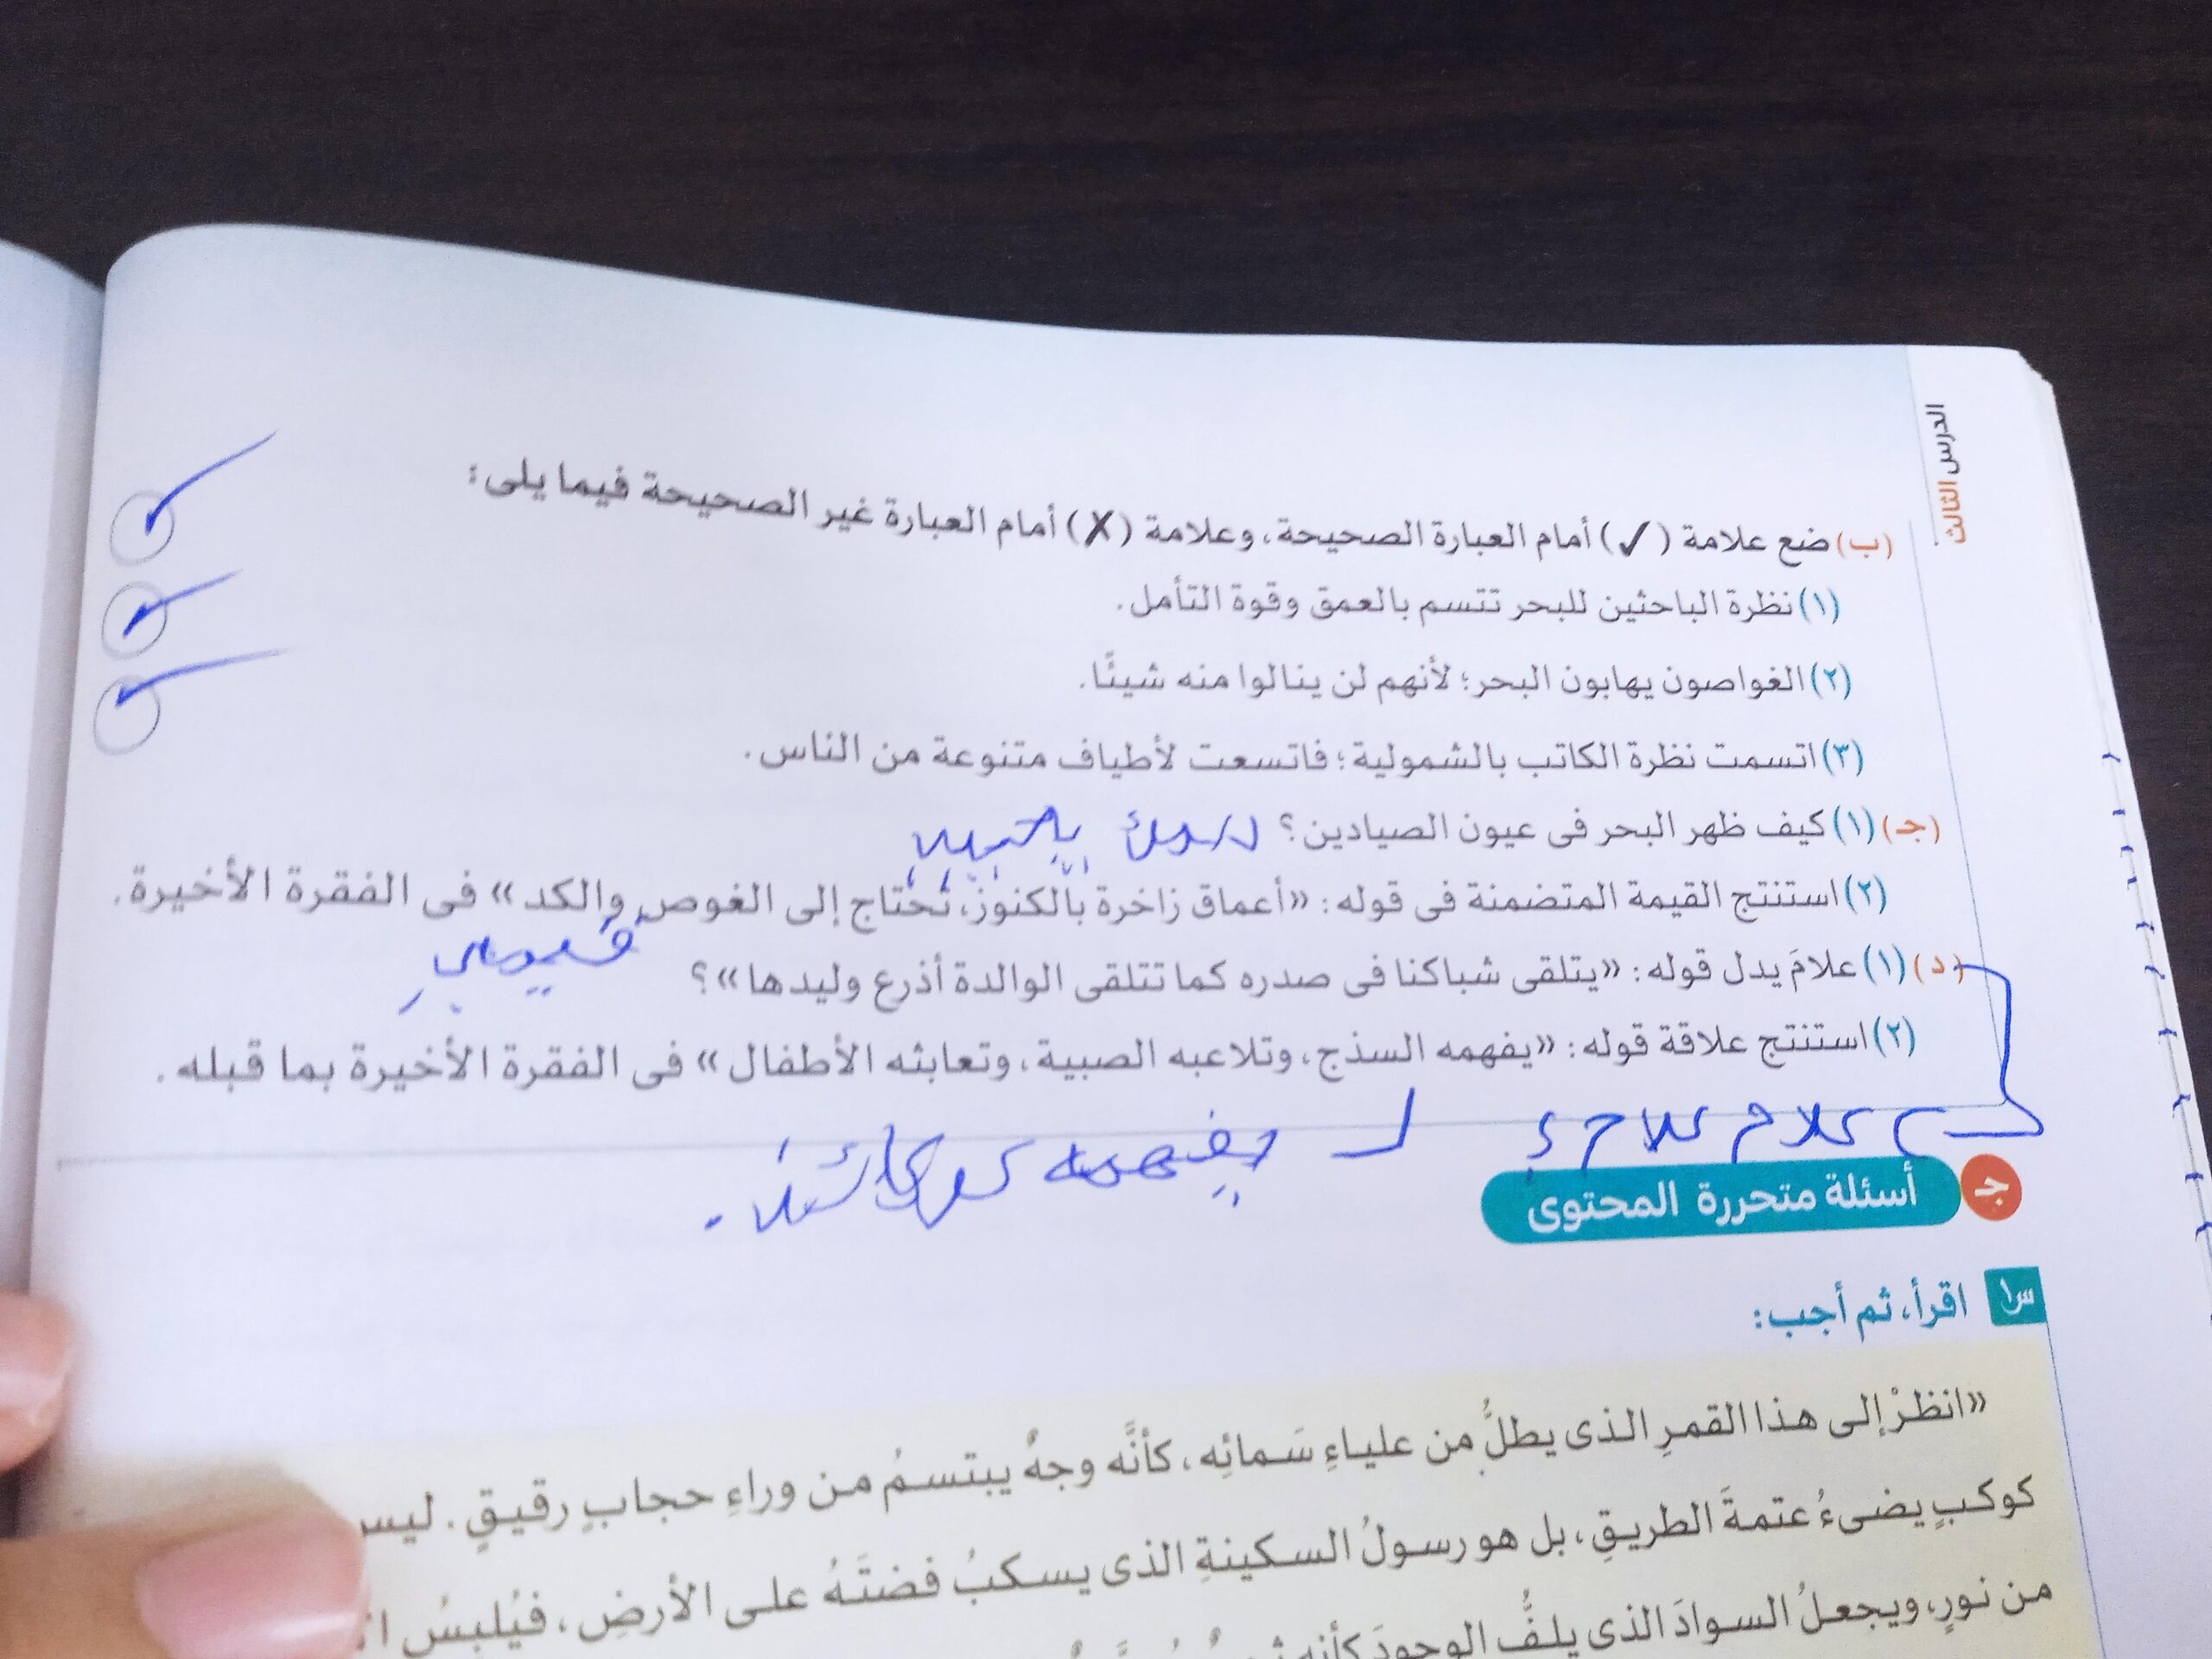 الدرس الثالث
(ب) ضع علامة (✓) أمام العبارة الصحيحة، وعلامة (✗) أمام العبارة غير الصحيحة فيما يلى:
(١) نظرة الباحثين للبحر تتسم بالعمق وقوة التأمل.
(٢) الغواصون يهابون البحر؛ لأنهم لن ينالوا منه شيئًا.
(٣) اتسمت نظرة الكاتب بالشمولية؛ فاتسعت لأطياف متنوعة من الناس.
(جـ) (١) كيف ظهر البحر فى عيون الصيادين؟
(٢) استنتج القيمة المتضمنة فى قوله: «أعماق زاخرة بالكنوز، تحتاج إلى الغوص والكد» فى الفقرة الأخيرة.
(د) (١) علامَ يدل قوله: «يتلقى شباكنا فى صدره كما تتلقى الوالدة أذرع وليدها»؟
(٢) استنتج علاقة قوله: «يفهمه السذج، وتلاعبه الصبية، وتعابثه الأطفال» فى الفقرة الأخيرة بما قبله.
يفهمه
جـ أسئلة متحررة المحتوى
س١ اقرأ، ثم أجب:
«انظرْ إلى هذا القمرِ الذى يطلُّ من علياءِ سَمائِه، كأنَّه وجهٌ يبتسمُ من وراءِ حجابٍ رقيقٍ. ليس
كوكبٍ يضىءُ عتمةَ الطريقِ، بل هو رسولُ السكينةِ الذى يسكبُ فضتَهُ على الأرضِ، فيُلبسُ
من نورٍ، ويجعلُ السوادَ الذى يلفُّ الوجودَ كأنه